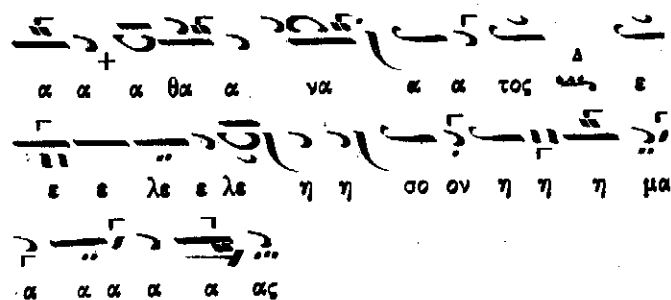 α α α θα α να α α τος ε
ε ε λε ε λε η η σο ον η η η μα
α α α α α ας